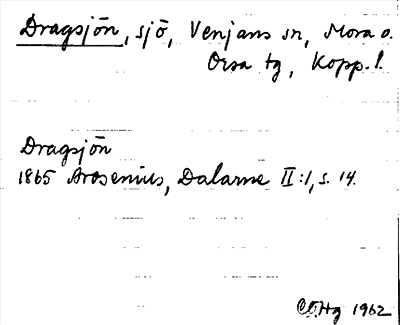 Dragsjön, sjö, Venjans sn, Mora o.
Orsa tg, Kopp. l.
Dragsjön
1865 Arosenius, Dalarne II:1, s. 14.
CO.Hg 1962